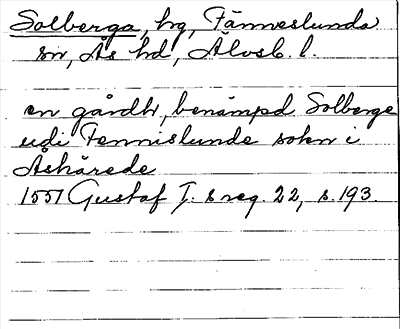 Solberga, hg, Fänneslunda
sn, Ås hd, Älvsb. l.
en gårdh, benämpd Solberge
udi Fennislunde sokn i
Åshärede
1551 Gustaf I. s reg. 22, s. 193.